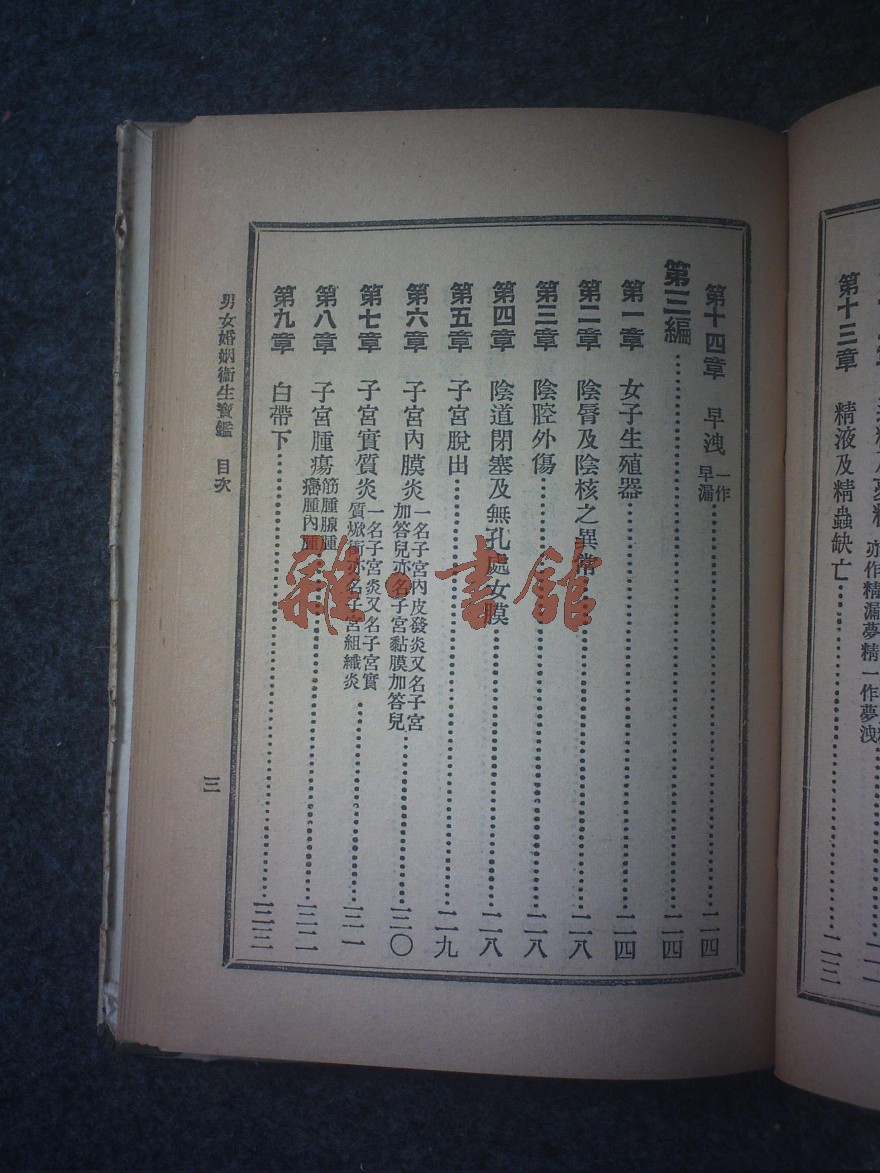 亦作精漏夢精一作夢洩
第十三章 精液及精蟲缺亡……二三
第十四章 早洩 一作早漏……二四
第三編……二四
第一章 女子生殖器……二四
第二章 陰脣及陰核之異常……二八
第三章 陰腔外傷……二八
第四章 陰道閉塞及無孔處女膜……二八
第五章 子宮脫出……二九
第六章 子宮內膜炎 一名子宮內皮發炎又名子宮加答兒亦名子宮黏膜加答兒……三〇
第七章 子宮實質炎 一名子宮炎又名子宮實質焮衝亦名子宮組織炎……三一
第八章 子宮腫瘍 筋腫腺腫癌腫內腫……三二
第九章 白帶下……三三
男女婚姻衞生寶鑑 目次
三
雜·書館